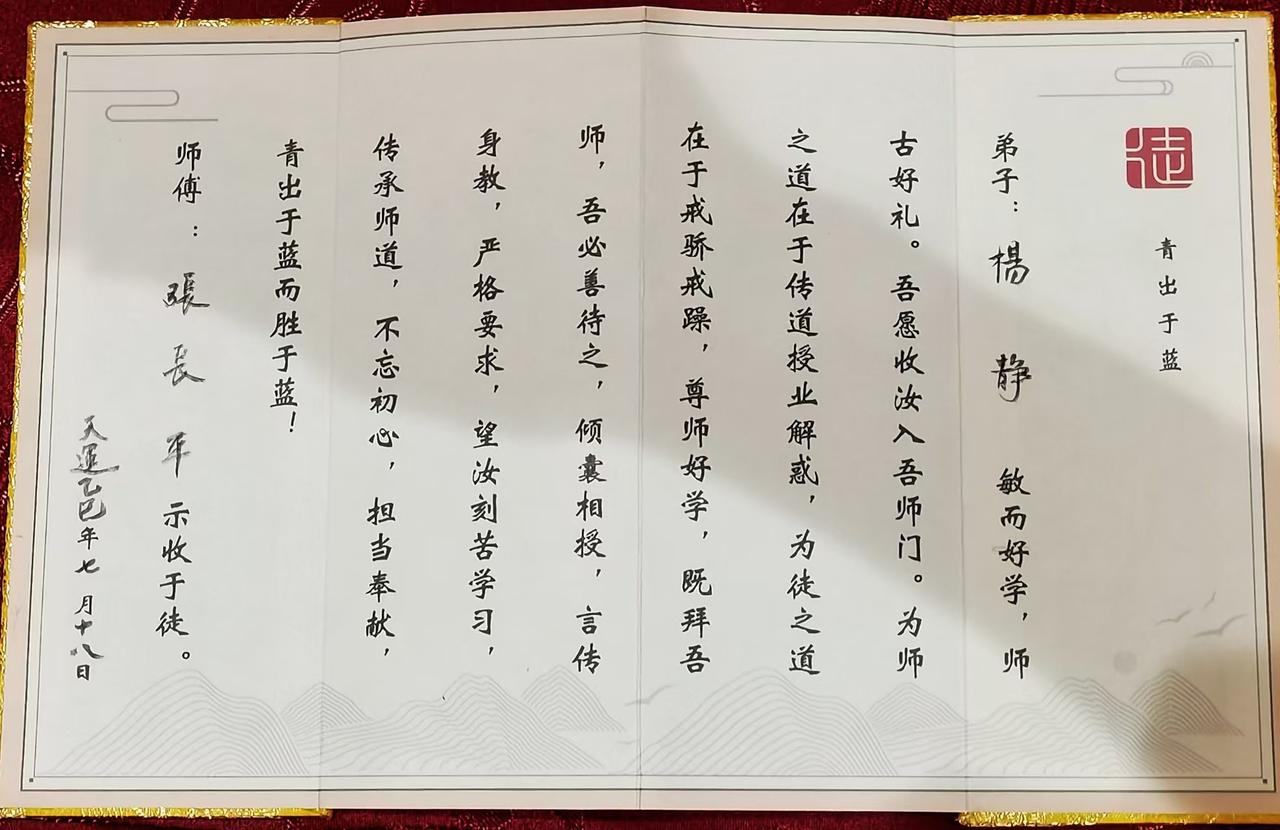 徒
青出于蓝
弟子：楊静 敏而好学，师
古好礼。吾愿收汝入吾师门。为师
之道在于传道授业解惑，为徒之道
在于戒骄戒躁，尊师好学，既拜吾
师，吾必善待之，倾囊相授，言传
身教，严格要求，望汝刻苦学习，
传承师道，不忘初心，担当奉献，
青出于蓝而胜于蓝！
师傅：張長平 示收于徒。
天運乙巳年七月十八日